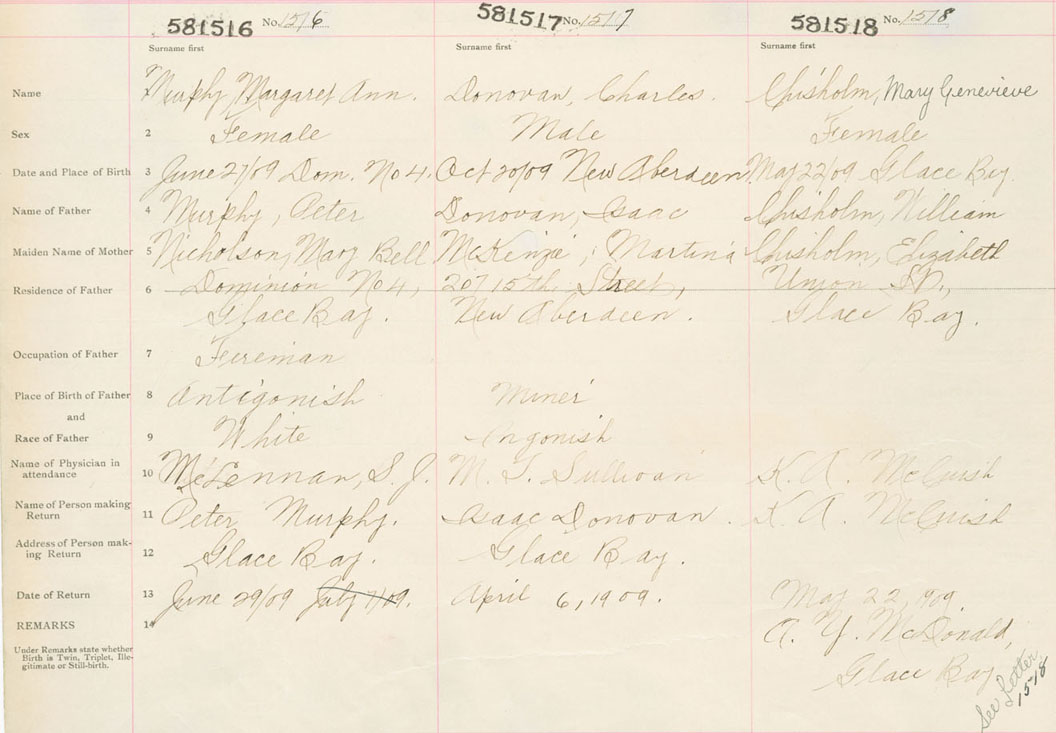 581516 No. 1516 581517 No. 1517 581518 No. 1518
Surname first Surname first Surname first
Name Murphy, Margaret Ann. Donovan, Charles. Chisholm, Mary Genevieve
Sex 2 Female Male Female
Date and Place of Birth 3 June 27/09 Dom. No 4. Oct 20/09 New Aberdeen May 22/09 Glace Bay.
Name of Father 4 Murphy, Peter Donovan, Isaac Chisholm, William
Maiden Name of Mother 5 Nicholson, Mary Bell McKenzie, Martina Chisholm, Elizabeth
Residence of Father 6 Dominion No 4, 207 15th Street, Union St.,
Glace Bay. New Aberdeen. Glace Bay.
Occupation of Father 7 Fireman
Place of Birth of Father 8 Antigonish Miner
and
Race of Father 9 White Ingonish
Name of Physician in
attendance 10 McLennan, S. J. M. T. Sullivan K. A. McCuish
Name of Person making
Return 11 Peter Murphy. Isaac Donovan. K. A. McCuish
Address of Person mak-
ing Return 12 Glace Bay. Glace Bay.
Date of Return 13 June 29/09 July 7/09. April 6, 1909. May 22, 1909.
REMARKS 14 A. Y. McDonald,
Under Remarks state whether
Birth is Twin, Triplet, Ille-
gitimate or Still-birth.
Glace Bay
See Letter
1518